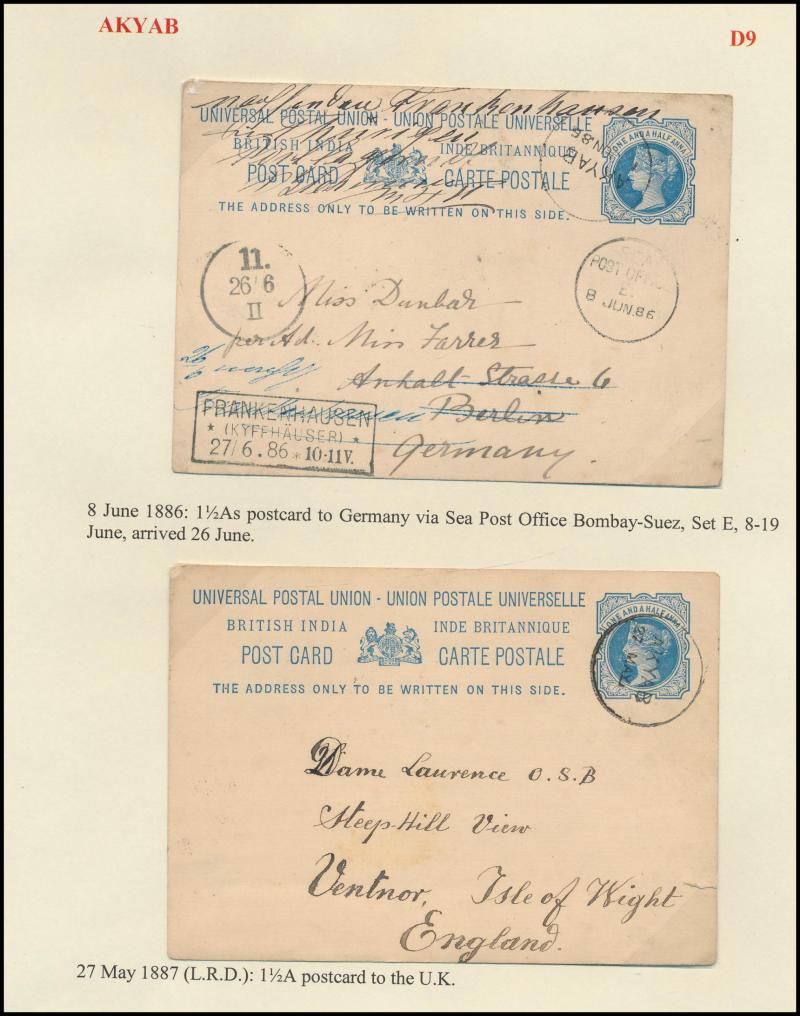 AKYAB
D9
Frankenhausen
UNIVERSAL POSTAL UNION - UNION POSTALE UNIVERSELLE
BRITISH INDIA INDE BRITANNIQUE
POST CARD CARTE POSTALE
THE ADDRESS ONLY TO BE WRITTEN ON THIS SIDE.
ONE AND A HALF ANNA
AKYAB
SEA
POST OFFICE
E.
8 JUN.86
11.
26/6
II
Miss Dunbar
per Ad. Miss Farrer
Anhalt Strasse 6
Berlin
Germany.
26/6
FRANKENHAUSEN
* (KYFFHÄUSER) *
27/6.86 * 10-11V.
8 June 1886: 1½As postcard to Germany via Sea Post Office Bombay-Suez, Set E, 8-19
June, arrived 26 June.
UNIVERSAL POSTAL UNION - UNION POSTALE UNIVERSELLE
BRITISH INDIA INDE BRITANNIQUE
POST CARD CARTE POSTALE
THE ADDRESS ONLY TO BE WRITTEN ON THIS SIDE.
ONE AND A HALF ANNA
AKYAB
Dame Laurence O.S.B
Steep-Hill View
Ventnor, Isle of Wight
England.
27 May 1887 (L.R.D.): 1½A postcard to the U.K.